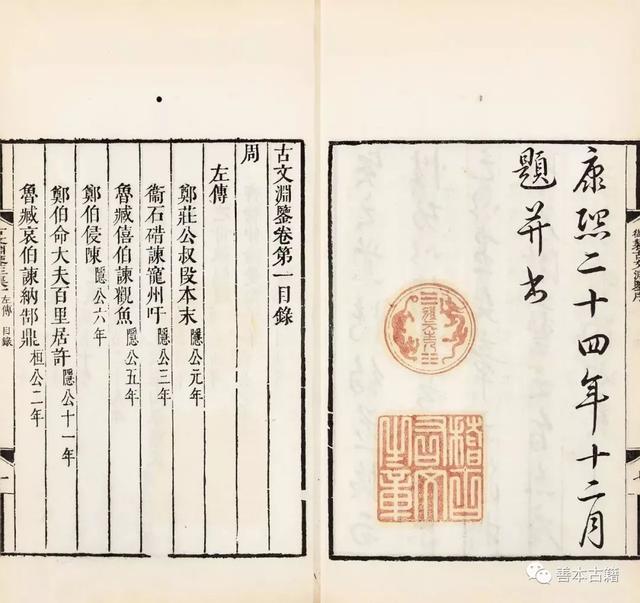 康熙二十四年十二月
題并書
稽古右文之章
古文淵鑒卷第一目錄
周
左傳
鄭莊公叔段本末 隱公元年
衞石碏諫寵州吁 隱公三年
魯臧僖伯諫觀魚 隱公五年
鄭伯侵陳 隱公六年
鄭伯命大夫百里居許 隱公十一年
魯臧哀伯諫納郜鼎 桓公二年
左傳 目錄
善本古籍